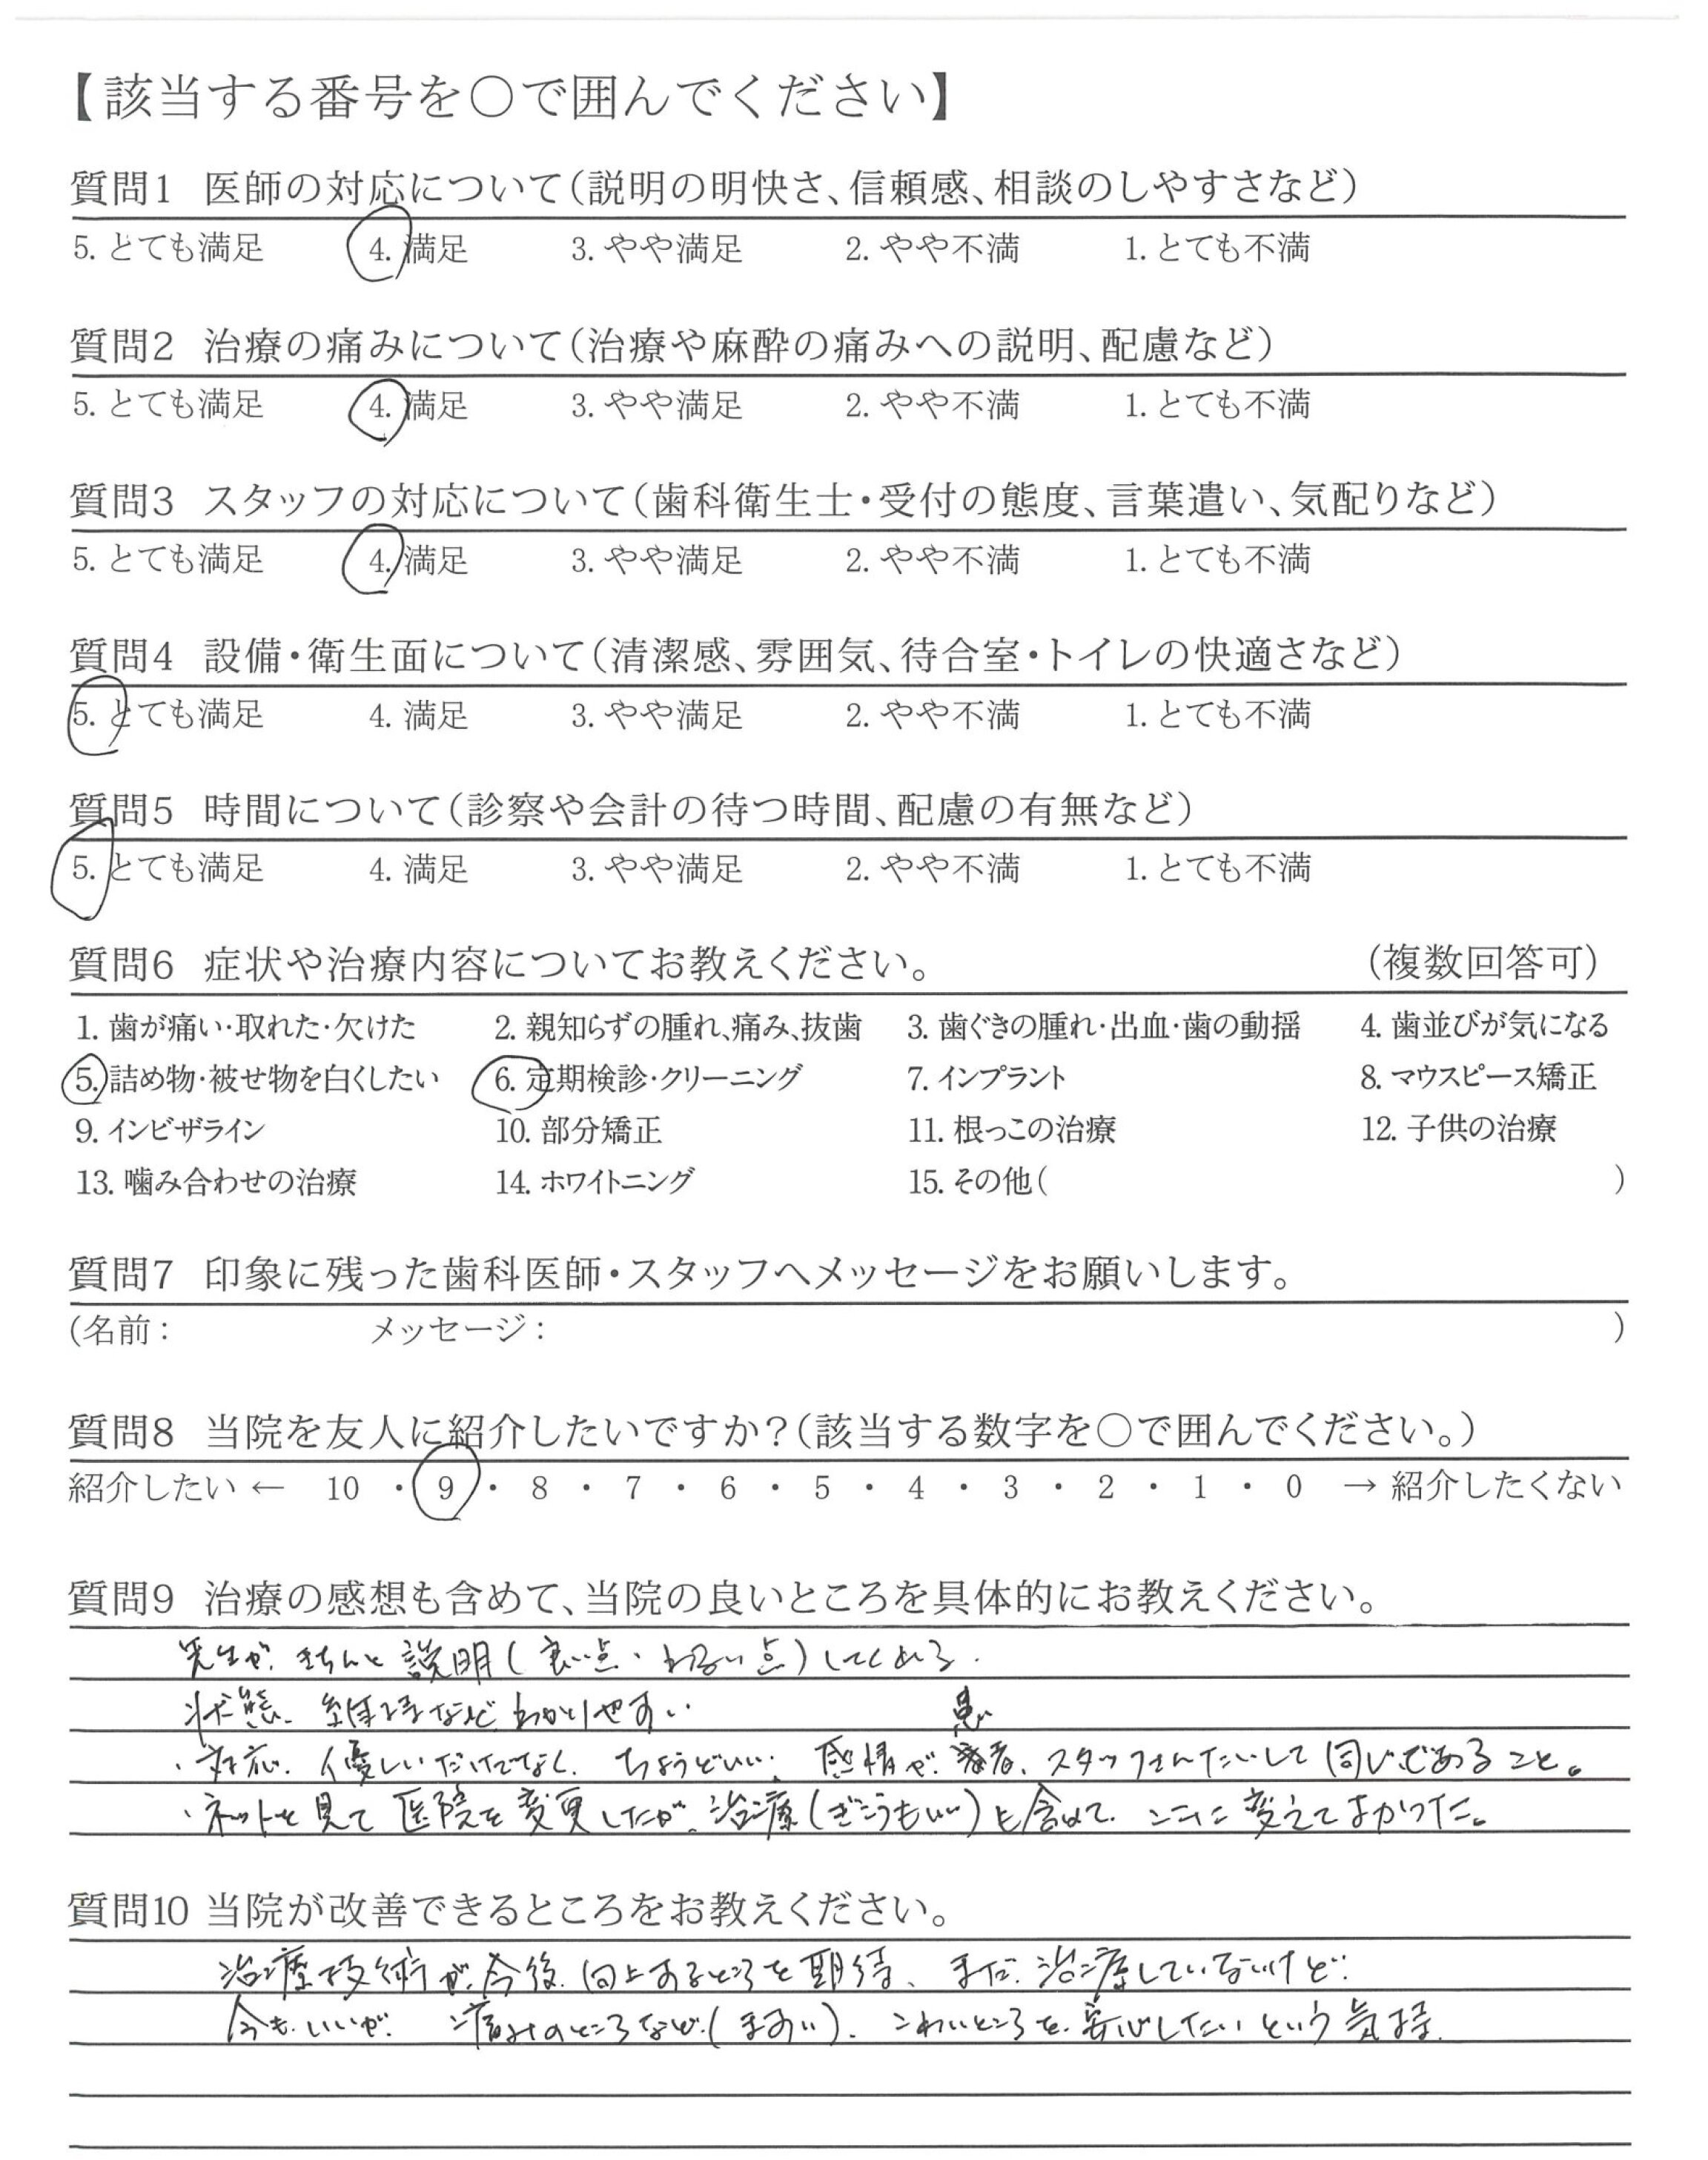 【該当する番号を〇で囲んでください】
質問1 医師の対応について(説明の明快さ、信頼感、相談のしやすさなど)
5. とても満足 4. 満足 3. やや満足 2. やや不満 1. とても不満
質問2 治療の痛みについて(治療や麻酔の痛みへの説明、配慮など)
5. とても満足 4. 満足 3. やや満足 2. やや不満 1. とても不満
質問3 スタッフの対応について(歯科衛生士・受付の態度、言葉遣い、気配りなど)
5. とても満足 4. 満足 3. やや満足 2. やや不満 1. とても不満
質問4 設備・衛生面について(清潔感、雰囲気、待合室・トイレの快適さなど)
5. とても満足 4. 満足 3. やや満足 2. やや不満 1. とても不満
質問5 時間について(診察や会計の待つ時間、配慮の有無など)
5. とても満足 4. 満足 3. やや満足 2. やや不満 1. とても不満
質問6 症状や治療内容についてお教えください。 (複数回答可)
1. 歯が痛い・取れた・欠けた 2. 親知らずの腫れ、痛み、抜歯 3. 歯ぐきの腫れ・出血・歯の動揺 4. 歯並びが気になる
5. 詰め物・被せ物を白くしたい 6. 定期検診・クリーニング 7. インプラント 8. マウスピース矯正
9. インビザライン 10. 部分矯正 11. 根っこの治療 12. 子供の治療
13. 噛み合わせの治療 14. ホワイトニング 15. その他( )
質問7 印象に残った歯科医師・スタッフへメッセージをお願いします。
(名前: メッセージ: )
質問8 当院を友人に紹介したいですか?(該当する数字を〇で囲んでください。)
紹介したい ← 10 ・ 9 ・ 8 ・ 7 ・ 6 ・ 5 ・ 4 ・ 3 ・ 2 ・ 1 ・ 0 → 紹介したくない
質問9 治療の感想も含めて、当院の良いところを具体的にお教えください。
先生が、きちんと説明(良い点、わるい点)してくれる.
状態、維持などわかりやすい
・対応、優しいだけでなく、ちょうどいい、感情が、患者、スタッフさんたいして同じであること。
・ネットを見て医院を変更したが、治療(ぎこうもいい)も含めて、ここに変えてよかった。
質問10 当院が改善できるところをお教えください。
治療技術が、今後、向上するところを期待、まだ、治療していないけど、
今も、いいが、痛みのところなど、(ますい)、こわいところを、安心したいという気持